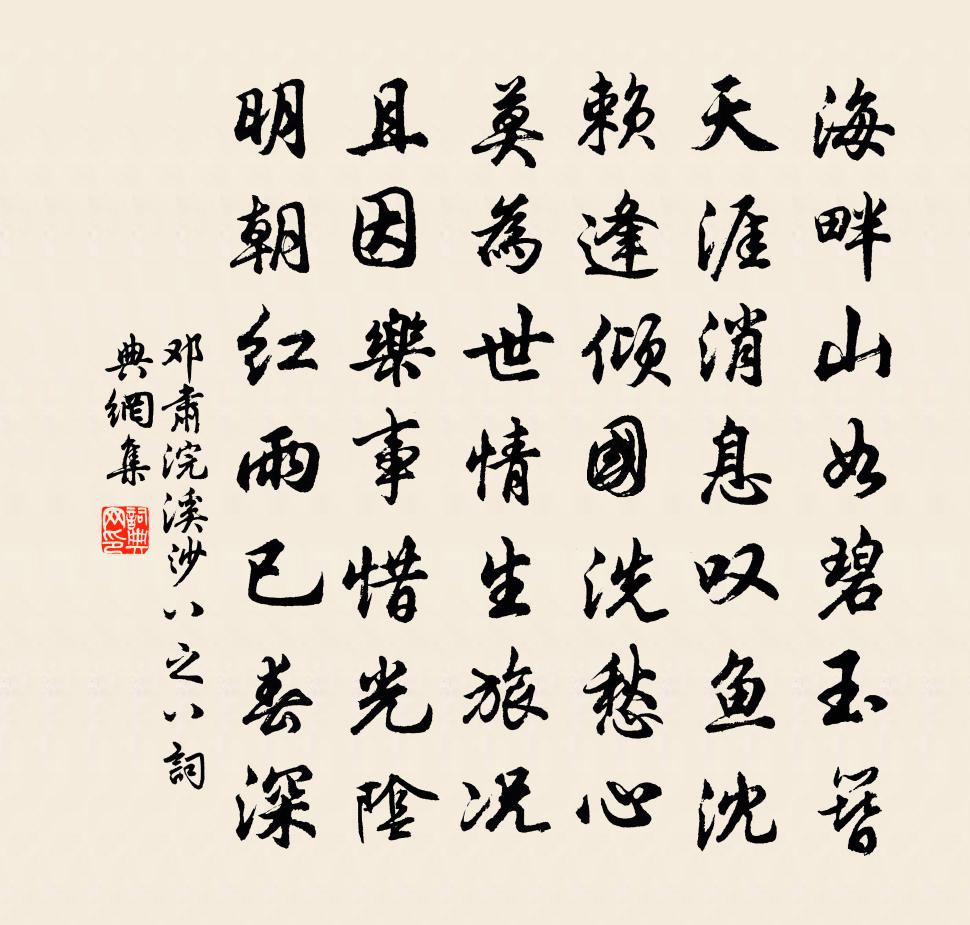 海畔山如碧玉簪
天涯消息叹鱼沈
赖逢倾國洗愁心
莫為世情生旅况
且因樂事惜光陰
明朝红雨已春深
邓肃浣溪沙八之八詞
典網集
詞典网印